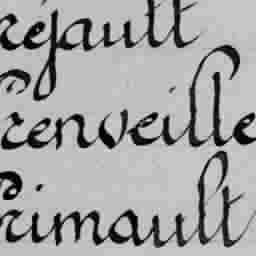 réjault
Prenveille
Primault